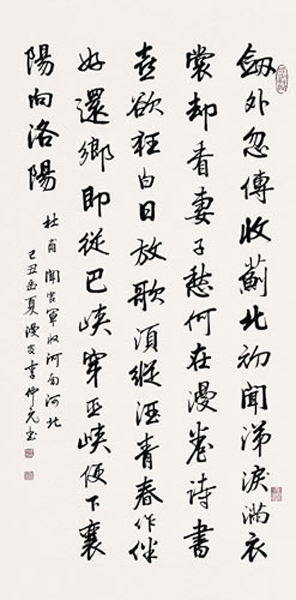 劍外忽傳收薊北初聞涕淚滿衣
裳却看妻子愁何在漫卷詩書
喜欲狂白日放歌須縱酒青春作伴
好還鄉即從巴峽穿巫峽便下襄
陽向洛陽
杜甫 聞官軍收河南河北
己丑夏李仲元書